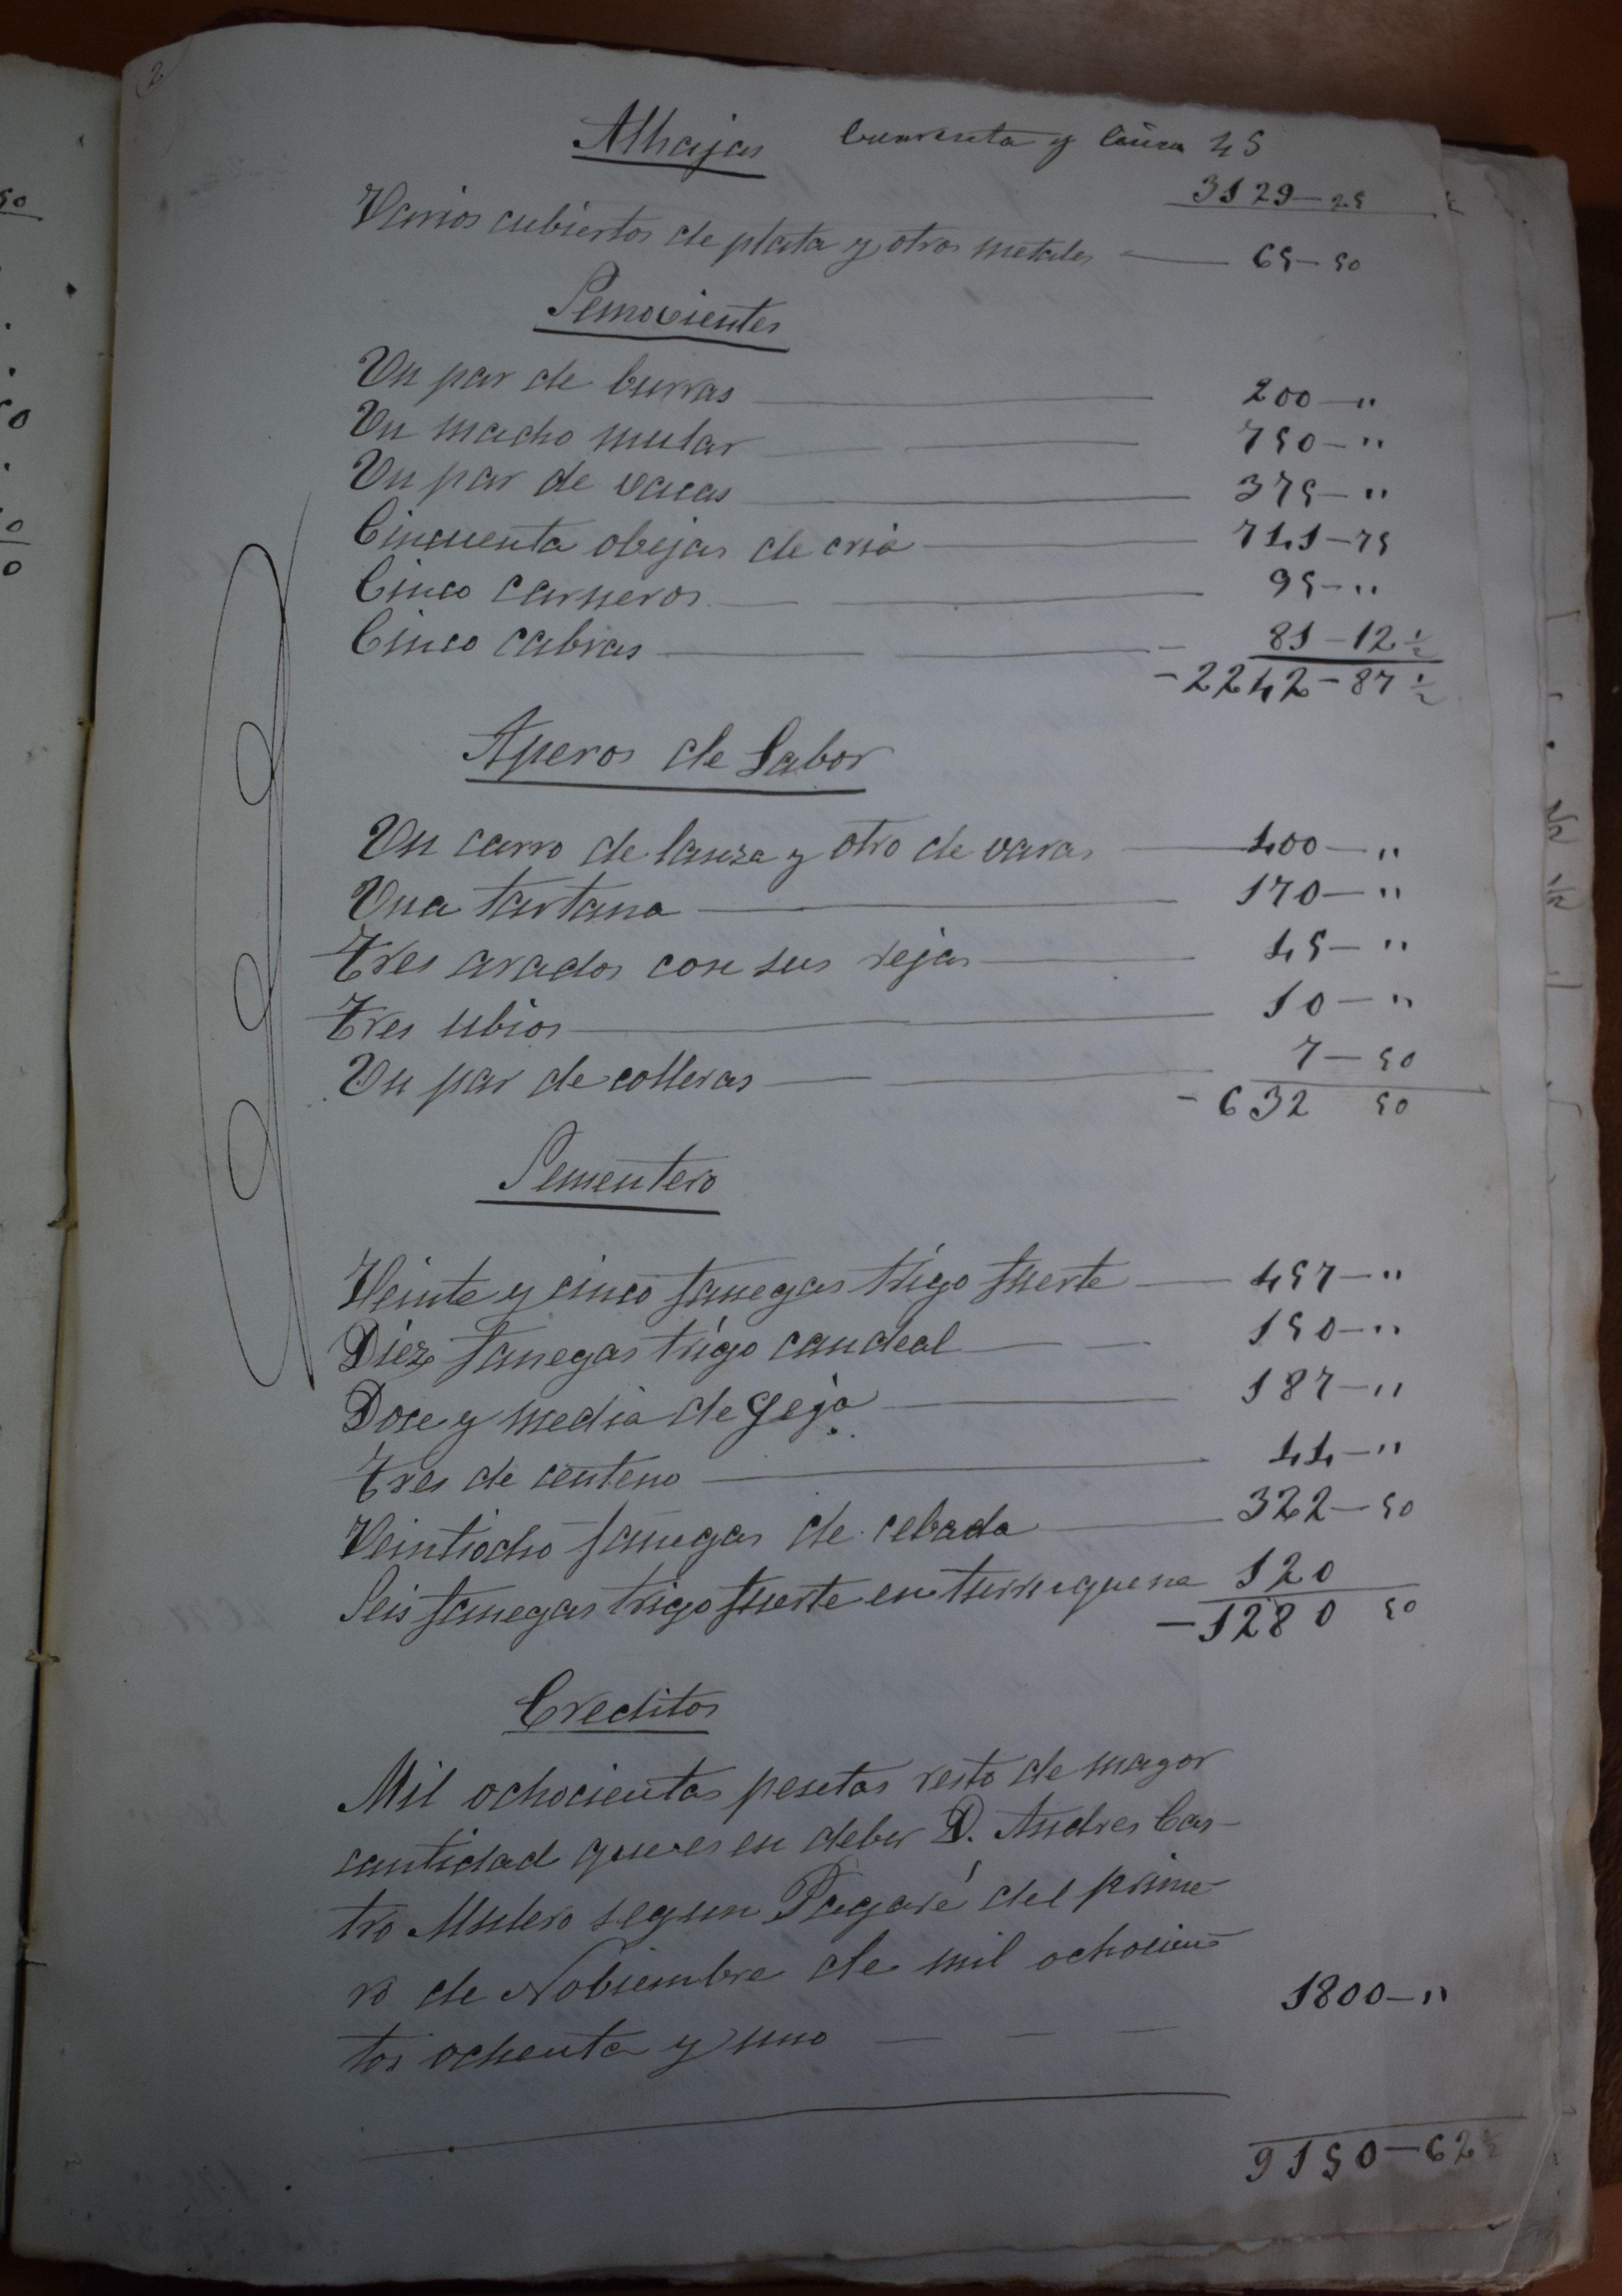 2
Alhajas Cuarenta y Cinco 45
3129—25
Varios cubiertos de plata y otros metales — 65—50
Semovientes
Un par de burras — 200—"
Un macho mular — 750—"
Un par de vacas — 375—"
Cincuenta obejas de cria — 741—75
Cinco carneros — 95—"
Cinco cabras — 81—12 ½
-2242-87 ½
Aperos de Labor
Un carro de lanza y otro de varas — 400—"
Una tartana — 170—"
Tres arados con sus rejas — 45—"
Tres ubios — 10—"
Un par de colleras — 7—50
- 632 50
Sementero
Veinte y cinco fanegas trigo fuerte — 457—"
Diez fanegas trigo candeal — 150—"
Doce y media de geja — 187—"
Tres de centeno — 44—"
Veintiocho fanegas de cebada — 322—50
Seis fanegas trigo fuerte en turruquena 120
-1280 50
Creditos
Mil ochocientas pesetas resto de mayor
cantidad que es en deber D. Andres Cas-
tro Mulero segun Pagaré del prime-
ro de Nobiembre de mil ochocien-
tos ochenta y uno — — — 1800—"
9150—62 ½